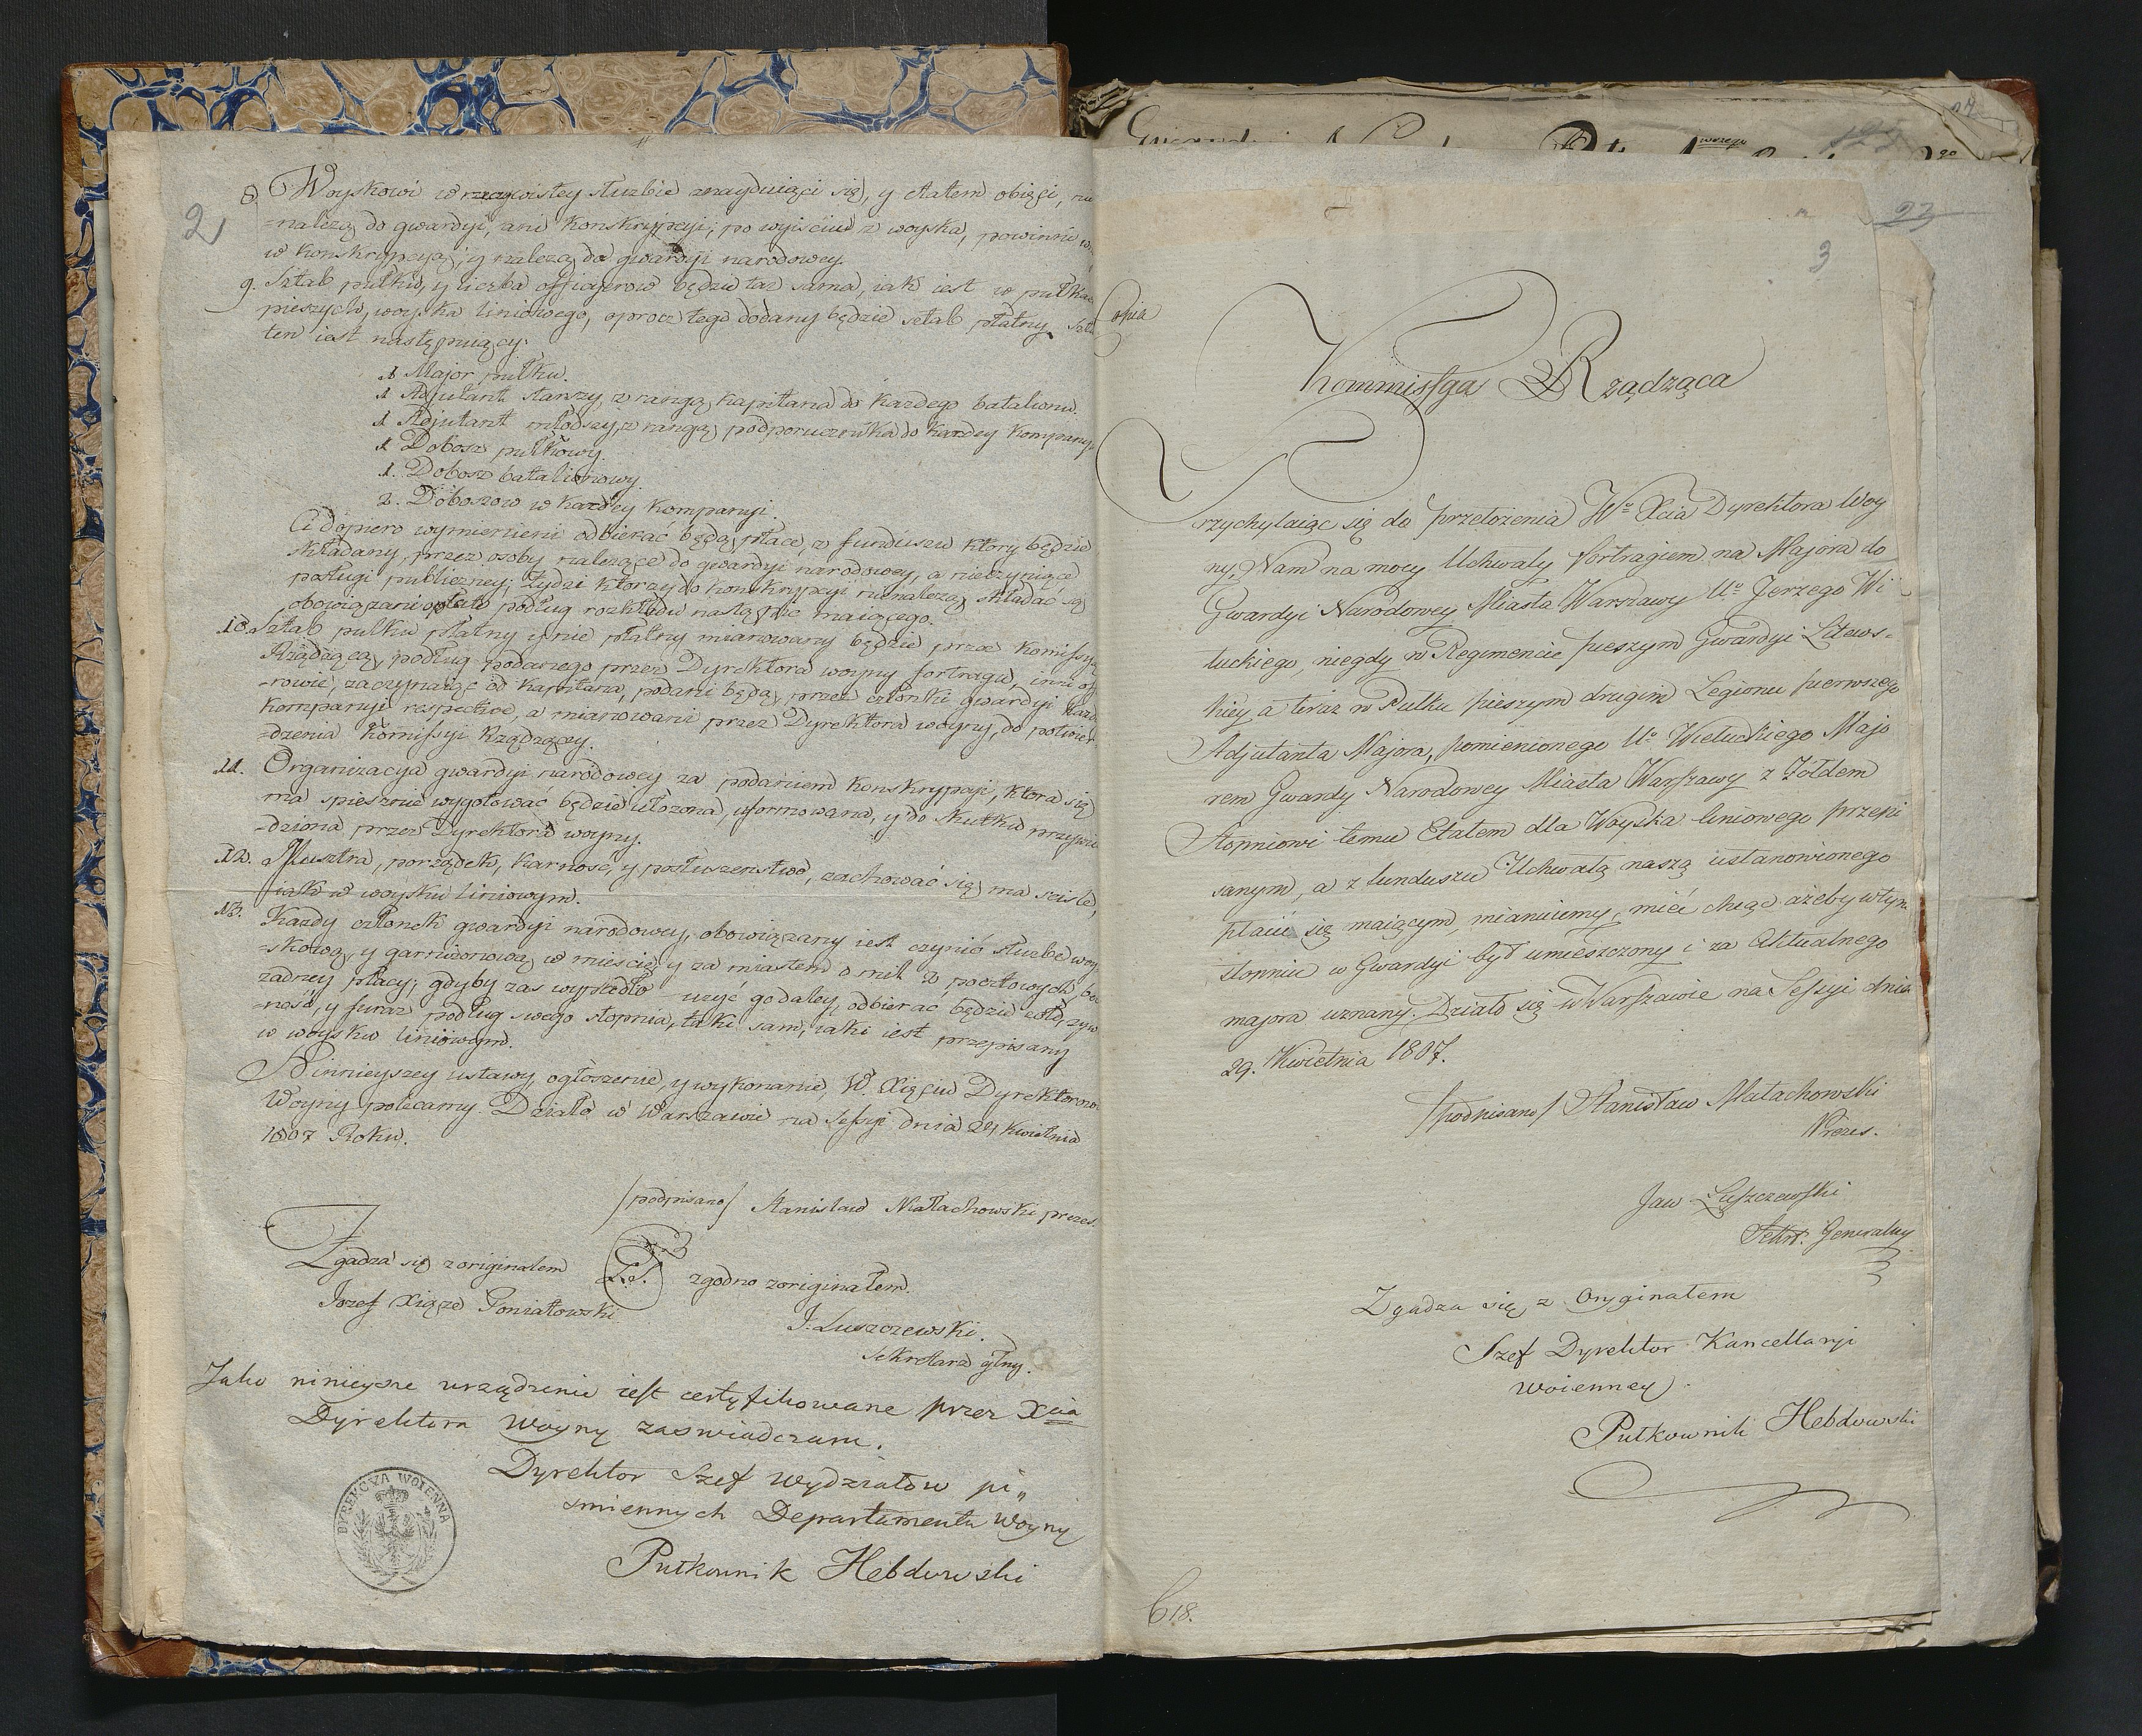 2
8. Woyskowi w rzeczywistey służbie znayduiący się, y etatem obięci, nie
=należą do gwardyi, ani Konskrypcyi; po wyisciu z woyska, powinni
w Konskrypcyą, y należą do gwardyi narodowey.
9. Sztab pułku, y liczba officyerow będzie taż sama, iak iest w pułkach
pieszych, woyska liniowego, oprocz tego dodany będzie sztab płatny.
ten iest następuiący:
1 Major pułku.
1 Adjutant starszy, z rangą Kapitana do każdego batalionu.
1 Adjutant młodszy, z rangą podporucznika do każdey Kompanyi
1 Dobosz pułkowy.
1. Dobosz batalionowy.
2. Doboszow w każdey Kompanyi.
Ci dopiero wymienieni odbierać będą płacę, z funduszu ktory będzie
składany, przez osoby należące do gwardyi narodowey, a nieczyniące
posługi publiczney; Żydzi ktorzy do Konskrypcyi nienależą, składać są
obowiązani opłatę podług rozkładu nastąpić maiącego.
10. Sztab pułku płatny y nie płatny mianowany będzie przez Komissyą
Rządzącą, podług podanego przez Dyrektora woyny fortragu, inni offi
=rowie, zaczynaiąc od Kapitana, podani będą przez członki gwardyi każd
Kompanyi respective, a mianowani przez Dyrektora woyny, do potwier
=dzenia Komissyi Rządzącey.
11. Organizacya gwardyi narodowey za podaniem Konskrypcyi, ktora się
ma spiesznie wygotować będzie ułozona, uformowana, y do skutku przywie
=dziona przez Dyrektora woyny.
12. Musztra, porządek, karność, y posłuszenstwo, zachować się ma scisle,
iak w woysku liniowym.
13. Każdy członek gwardyi narodowey, obowiązany iest czynić służbę woy
=skową, y garnizonową w miescie, y za miastem o mil 2 pocztowych, bez
żadney płacy; gdyby zas wypadło użyć go daley, odbierać będzie żołd, żyw
=ność, y furaż podług swego stopnia, taki sam, iaki iest przepisany
w woysku liniowym.
Ninnieyszey ustawy, ogłoszenie, y wykonanie, W. Xięciu Dyrektorowi
Woyny polecamy. Działo w Warszawie na sessyi dnia 24 kwietnia
1807 Roku.
/podpisano/ Stanisław Małachowski prezes.
Zgadza się z originałem
L.S.
zgodno z originałem.
Jozef Xiąże Poniatowski
J. Łuszczewski.
Sekretarz glny.
Jako ninieysze urządzenie iest certyfikowane przez Xcia
Dyrektora Woyny zaswiadczam.
Dyrektor Szef Wydziałow pi„
smiennych Departamentu Woyny
Pułkownik Hebdowski
DYREKCYA WOIENNA
23
3
Kopia
Kommissya Rządząca
Przychylaiąc się do przełożenia Wo Xcia Dyrektora Woy
ny, Nam na mocy Uchwały fortragiem na Majora do
Gwardyi Narodowey Miasta Warszawy Uo Jerzego Wi
tuckiego, niegdy w Regimencie pieszym Gwardyi Litews=
kiey a teraz w Pułku pieszym drugim Legionu pierwszego
Adjutanta Majora, pomienionego Uo Wituckiego Majo
rem Gwardy Narodowey Miasta Warszawy z Żołdem
Stopniowi temu Etatem dla Woyska liniowego przepi
sanym, a z funduszu Uchwałą naszą ustanowionego
płacić się maiącym, mianuiemy, mieć chcąc ażeby w tym
stopniu w Gwardyi był umieszczony i za Aktualnego
majora uznany. Działo się w Warszawie na Sessyi dnia
29. Kwietnia 1807.
/podpisano/ Stanisław Małachowski
Prezes.
Jan Łuszczewski
Sekrt. Generalny
Zgadza się z Oryginałem
Szef Dyrektor Kancellaryi
Woienney.
Pułkownik Hebdowski
618.